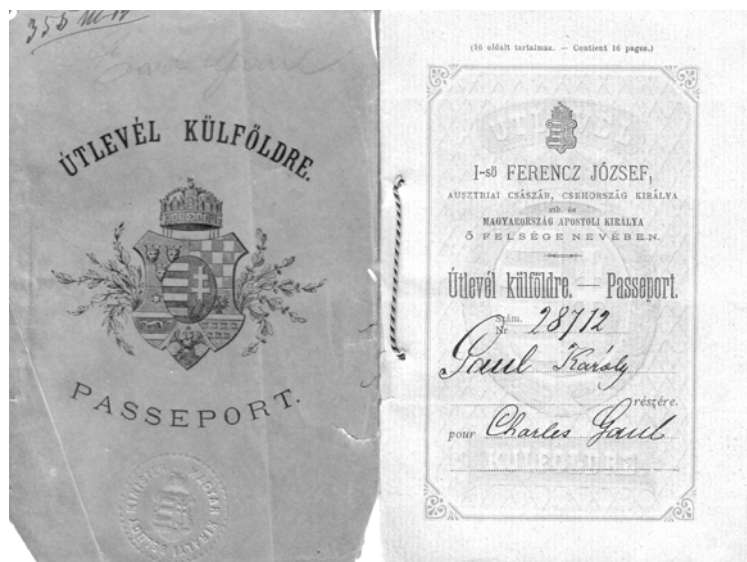 ÚTLEVÉL KÜLFÖLDRE.
PASSEPORT.
(16 oldalt tartalmaz. — Contient 16 pages.)
I-ső FERENCZ JÓZSEF,
AUSZTRIAI CSÁSZÁR, CSEHORSZÁG KIRÁLYA
stb. és
MAGYARORSZÁG APOSTOLI KIRÁLYA
Ő FELSÉGE NEVÉBEN.
Útlevél külföldre. — Passeport.
Szám.
Nr 28712
Gaul Károly
részére.
pour Charles Gaul